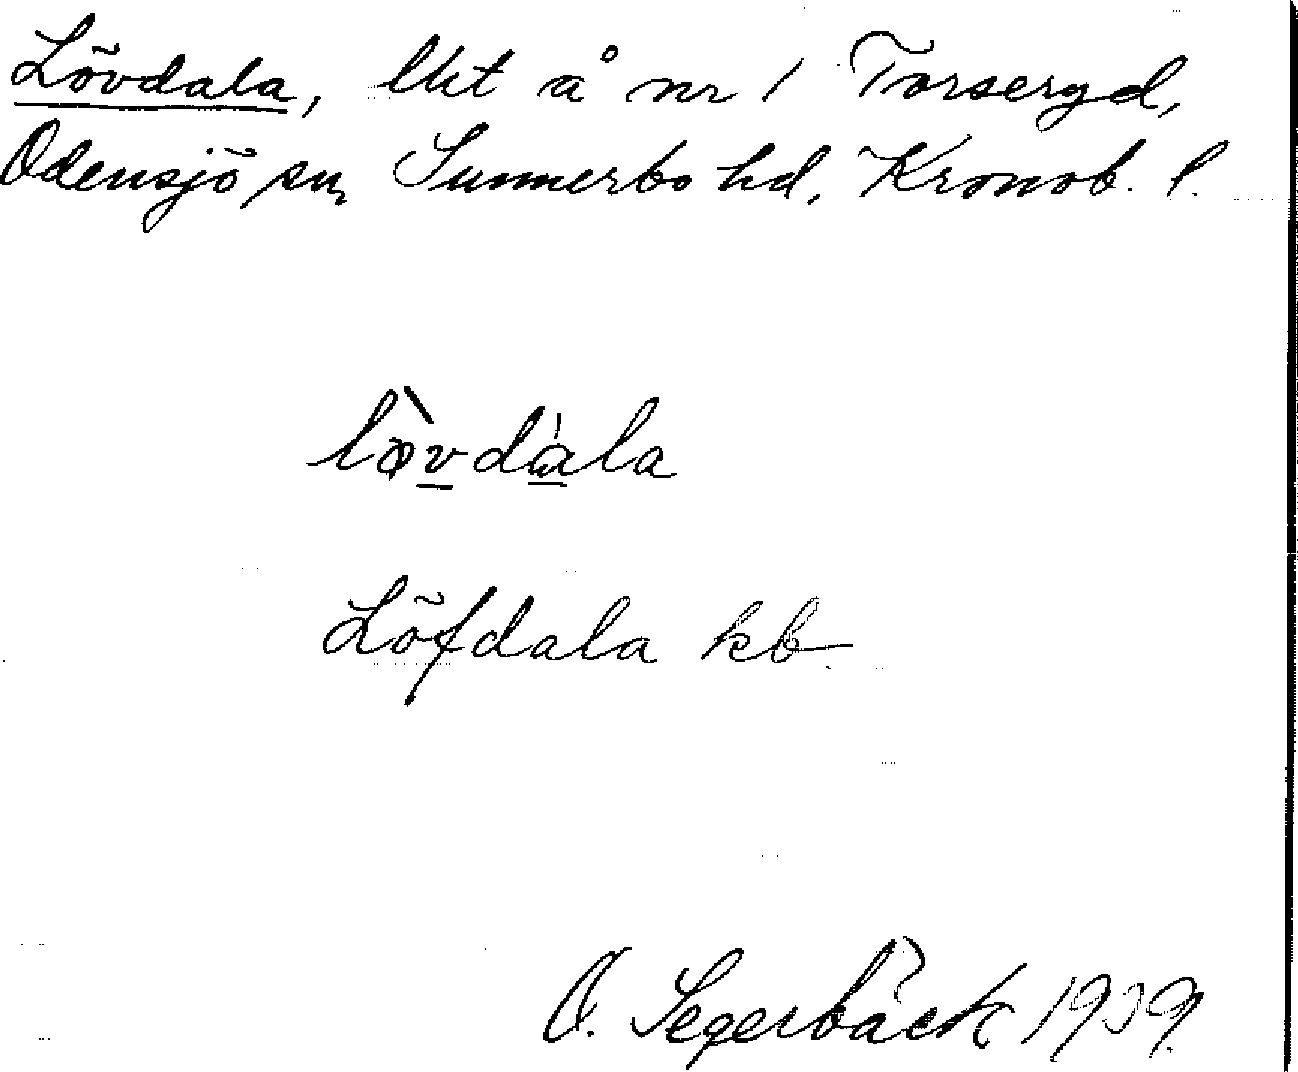 Lövdala, lht å nr 1 Torseryd,
Odensjö sn, Sunnerbo hd, Kronob. l.
lø̀vdàla
Löfdala kb
O. Segerbäck 1939